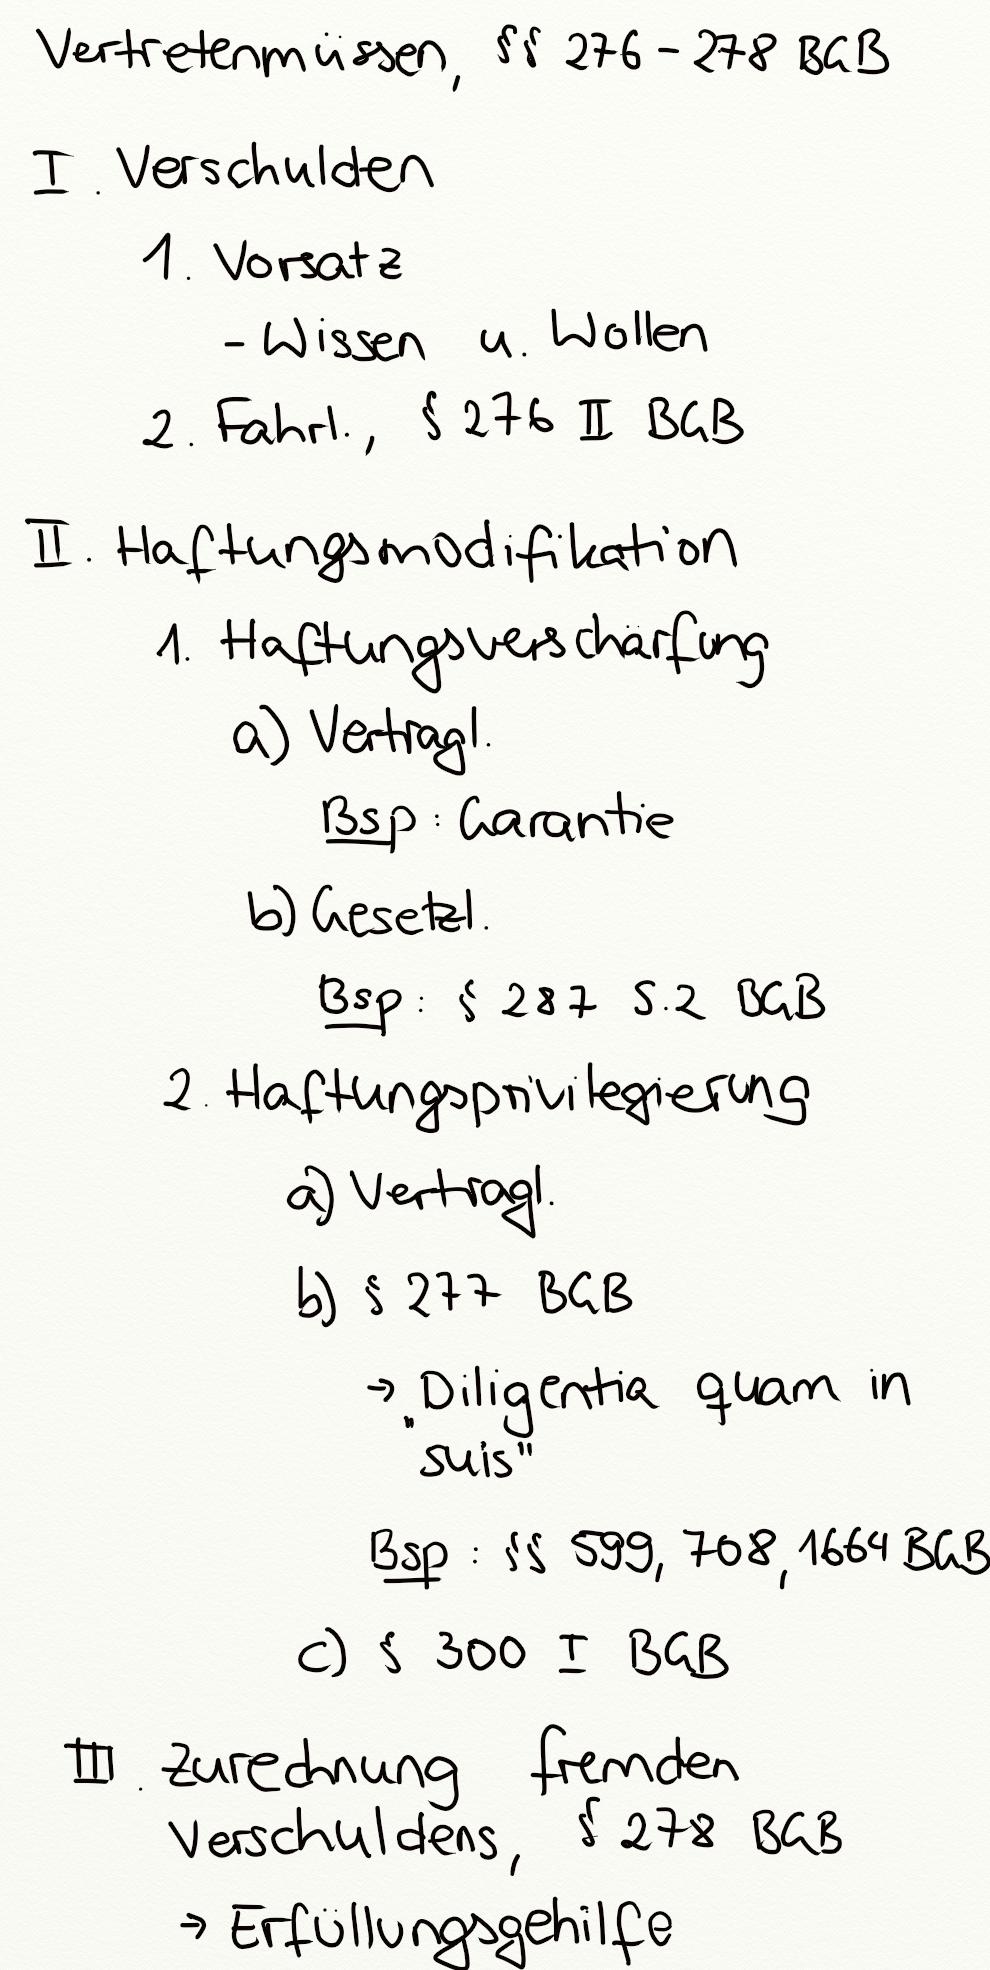 Vertretenmüssen, §§ 276 - 278 BGB
I. Verschulden
1. Vorsatz
- Wissen u. Wollen
2. Fahrl., § 276 II BGB
II. Haftungsmodifikation
1. Haftungsverschärfung
a) Vertragl.
Bsp: Garantie
b) Gesetzl.
Bsp: § 287 S.2 BGB
2. Haftungsprivilegierung
a) Vertragl.
b) § 277 BGB
→ „Diligentia quam in
suis"
Bsp: §§ 599, 708, 1664 BGB
c) § 300 I BGB
III. Zurechnung fremden
Verschuldens, § 278 BGB
→ Erfüllungsgehilfe